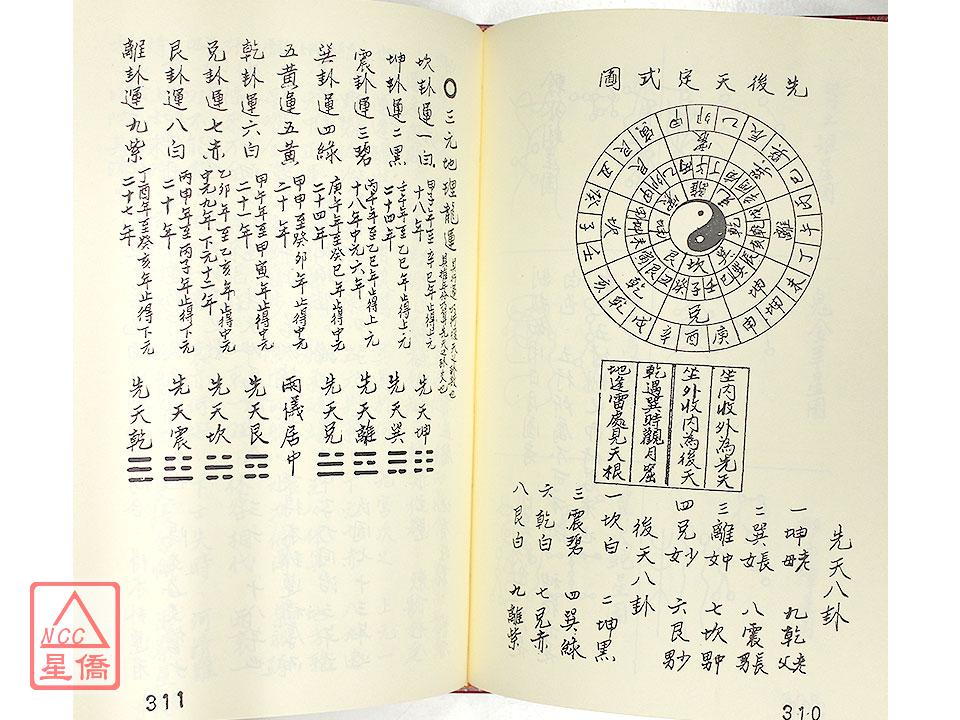 先後天定式圖
乙 辰 巽 巳 丙 午 丁 未 坤 申 庚 酉 辛 戌 乾 亥 壬 子 癸 丑 艮 寅 甲 卯
震 巽 離 坤 兌 乾 坎 艮
坐內收外為先天
坐外收內為後天
乾遇巽時觀月窟
地逢雷處見天根
先天八卦
一坤老母 九乾老父
二巽長女 八震長男
三離中女 七坎中男
四兌少女 六艮少男
後天八卦
一坎白 二坤黑
三震碧 四巽綠
六乾白 七兌赤
八艮白 九離紫
310
三元地理龍運
坎卦運一白 甲子年至辛巳年止得上元十八年 先天坤
坤卦運二黑 壬午年至乙巳年止得上元二十四年 先天巽
震卦運三碧 丙午年至己巳年止得上元十八年中元六年 先天離
巽卦運四綠 庚午年至癸巳年止得中元二十四年 先天兌
五黃運五黃 甲申至癸卯年止得中元二十年 兩儀居中
乾卦運六白 甲午年至甲寅年止得中元二十一年 先天艮
兌卦運七赤 乙卯年至乙亥年止得中元九年下元十二年 先天坎
艮卦運八白 丙申年至丙子年止得下元二十年 先天震
離卦運九紫 丁酉年至癸亥年止得下元二十七年 先天乾
311
NCC
星僑